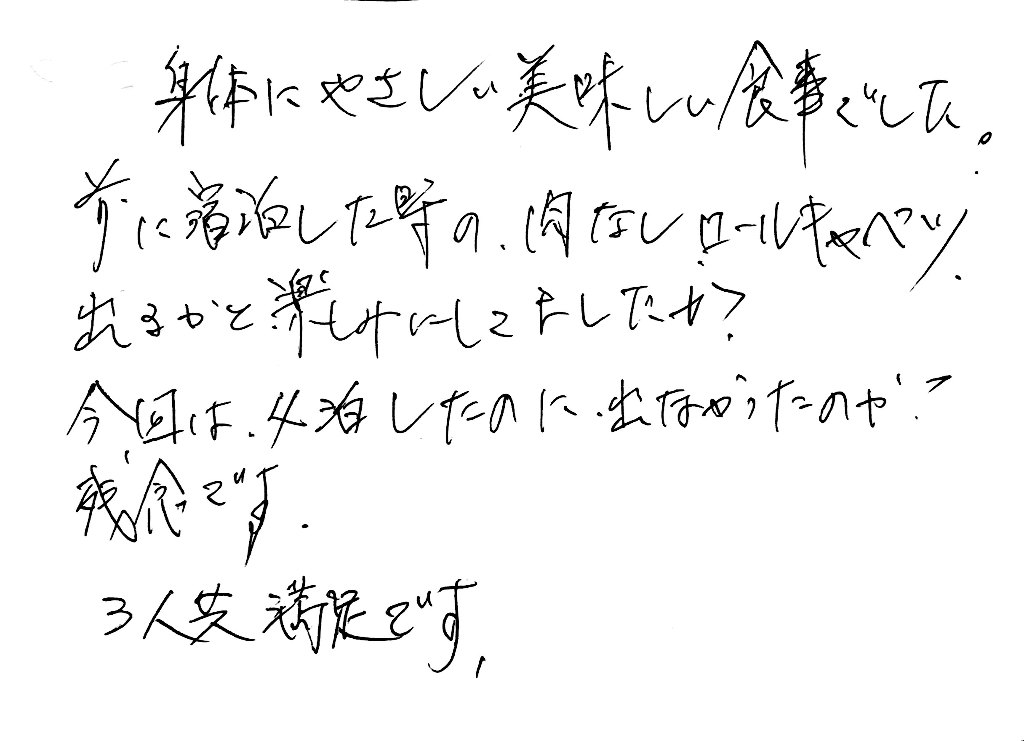 身体にやさしい美味しい食事でした。
前に宿泊した時の、肉なしロールキャベツ、
出るかと楽しみにしてましたが?
今回は、4泊したのに、出なかったのが?
残念です.
3人共満足です,